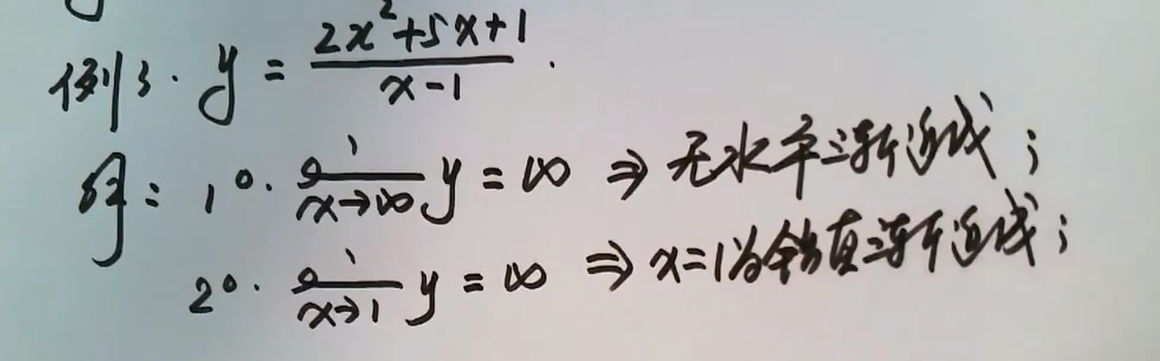 例3. y = \frac{2x^2+5x+1}{x-1}.
解: 1°. \lim_{x→∞} y = ∞ ⇒ 无水平渐近线;
2°. \lim_{x→1} y = ∞ ⇒ x=1为铅直渐近线;